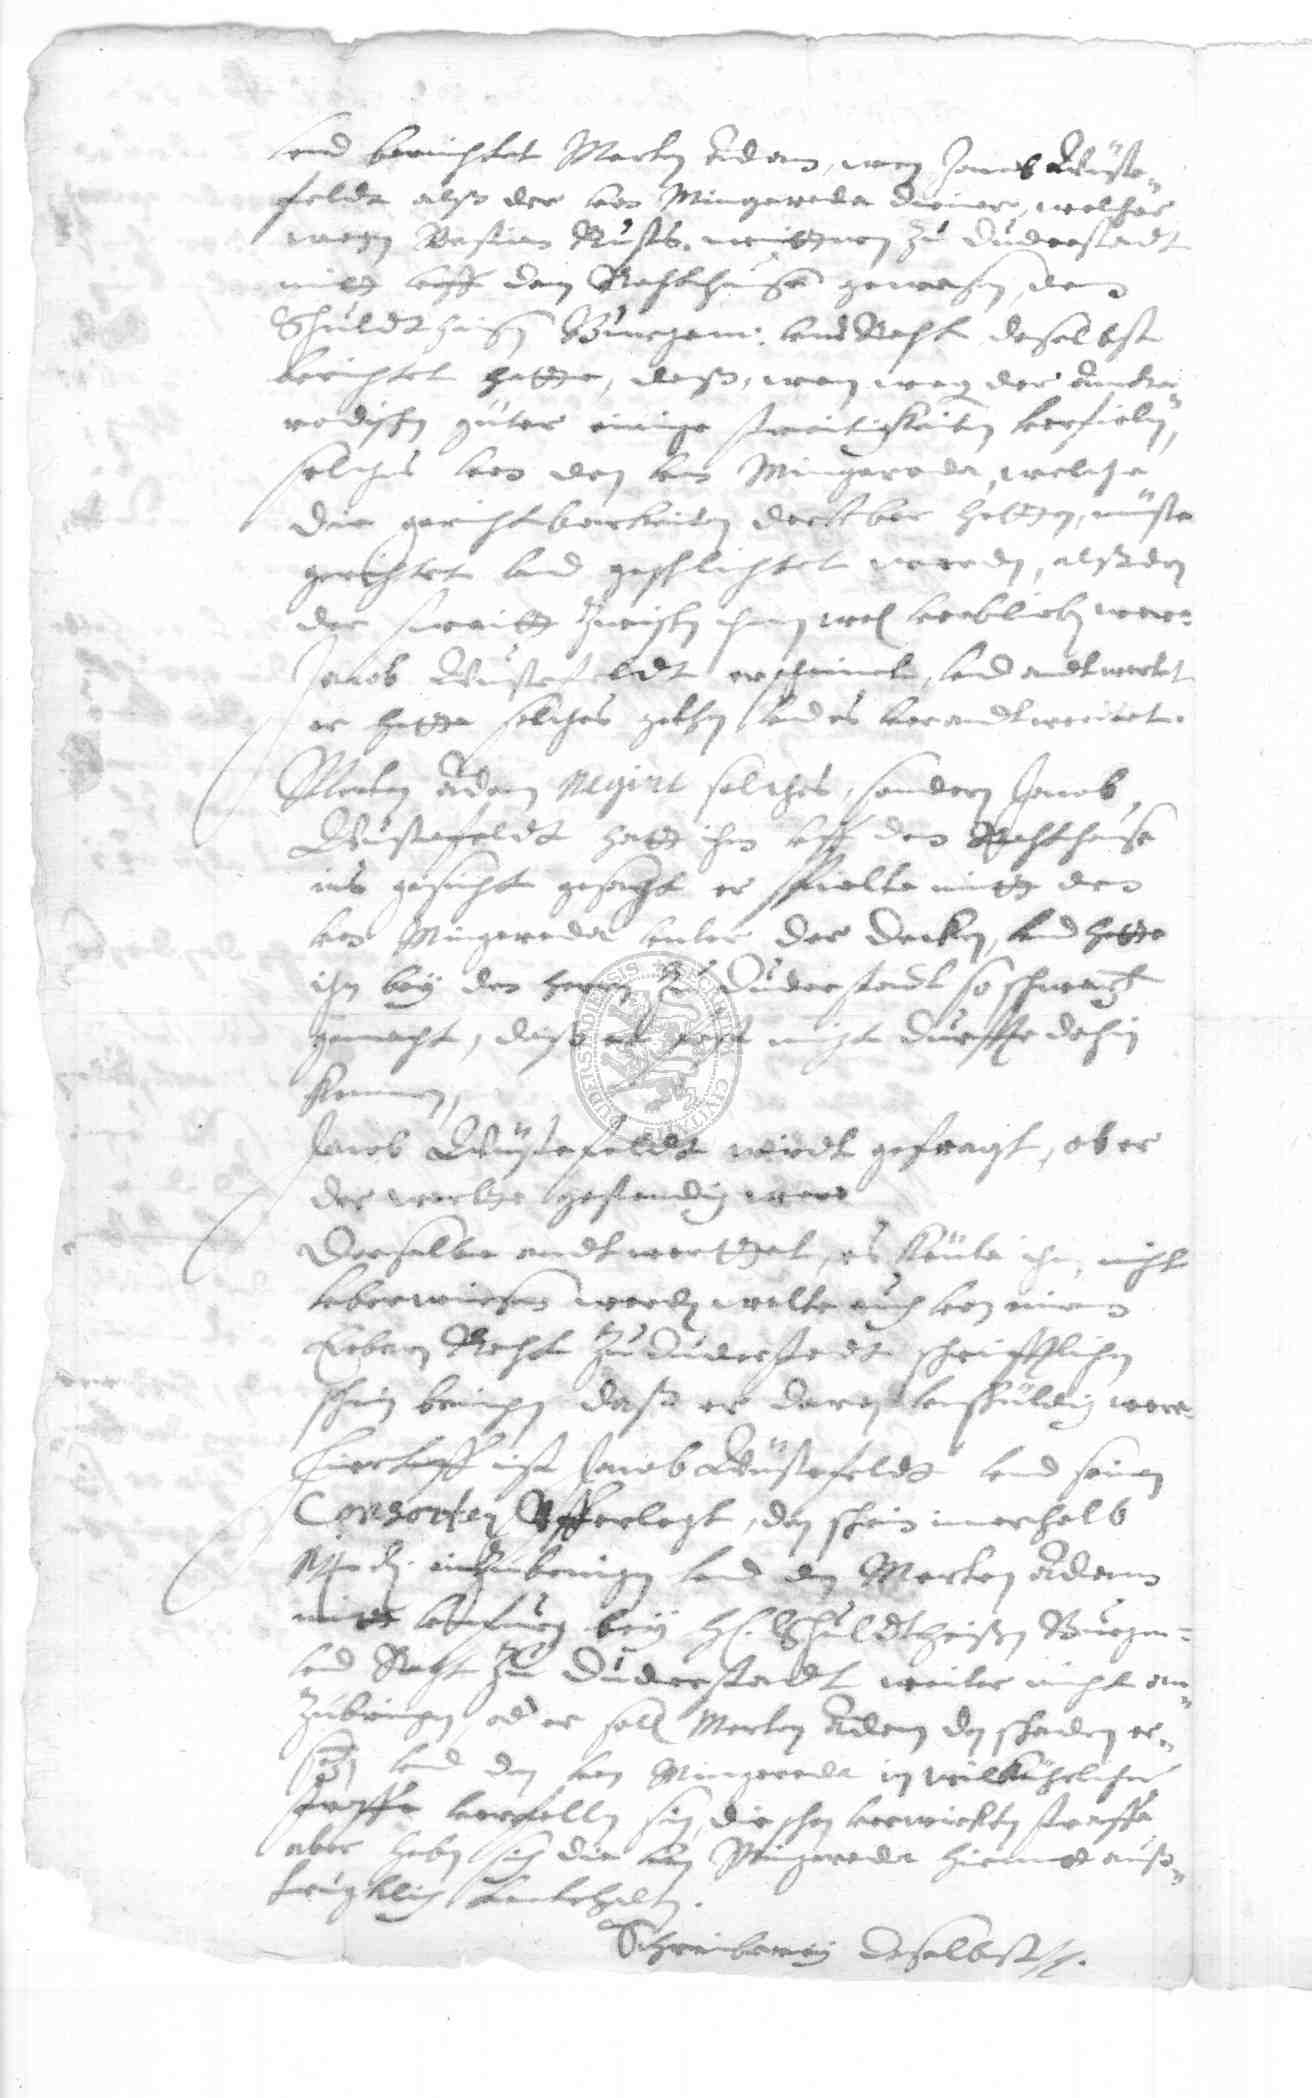 und berichtet Merten Adam, wen Jacob Wüste„
feldt alß der von Mingerode diener, welcher
wegen Bastian Rusts. wittwen zu Duderstadt
mitt uff dem Rahthause gewesen, dem
Schuldtheißen Burgem: und Raht daselbst
berichtet hette, daß, wen weg der
rodischen güter einige streitigkeiten vorfielen,
solches von den von Mingerode, welche
die gerichtbarkeiten darüber hetten, müste
gerichtet und geschlichtet werden, alßden
der streitt zwischen ihnen wol verblieben were.
Jacob Wüstefeldt erscheinet, und andtwortet
er hette solches gethan und es verandtwortet.
Merten Adam Negirt solches, sondern Jacob
Wüstefeldt hette ihm uff dem Rahthause
ins gesicht gesagt er spielte mitt den
von Mingerode unter der Decken, und hette
ihn bey den herren zu Duderstadt so schwartz
gemacht, daß er fast nicht durffte dahin
kommen,
Jacob Wüstefeldt wirdt gefragt, ob er
der wortte gestendig were
Derselbe andtworttet, es könte ihm nicht
uberwiesen werden wolte auch von einem
Erbarn Raht zu Duderstadt schrifftlichen
schein bringen daß er daran unschuldig were.
Hierauff ist Jacob Wüstefeldt und seinen
Consorten Ufferlegt, den schein innerhalb
einzubringen und den Merten Adam
mitt bey H. Schuldtheißen Burgem=
und Raht zu Duderstadt weiter nicht an„
zubringen, oder er soll Merten Adam den schaden er„
setzen und den von Mingerode in willkührlicher
straffe verfallen sein, die schon verwirkten straffe
aber haben sich die von Mingerode hiemitt auß„
trücklich vorbehalten.
Schreiberey daselbst
SIGILLUM CIVITATIS DUDERSTADENSIS